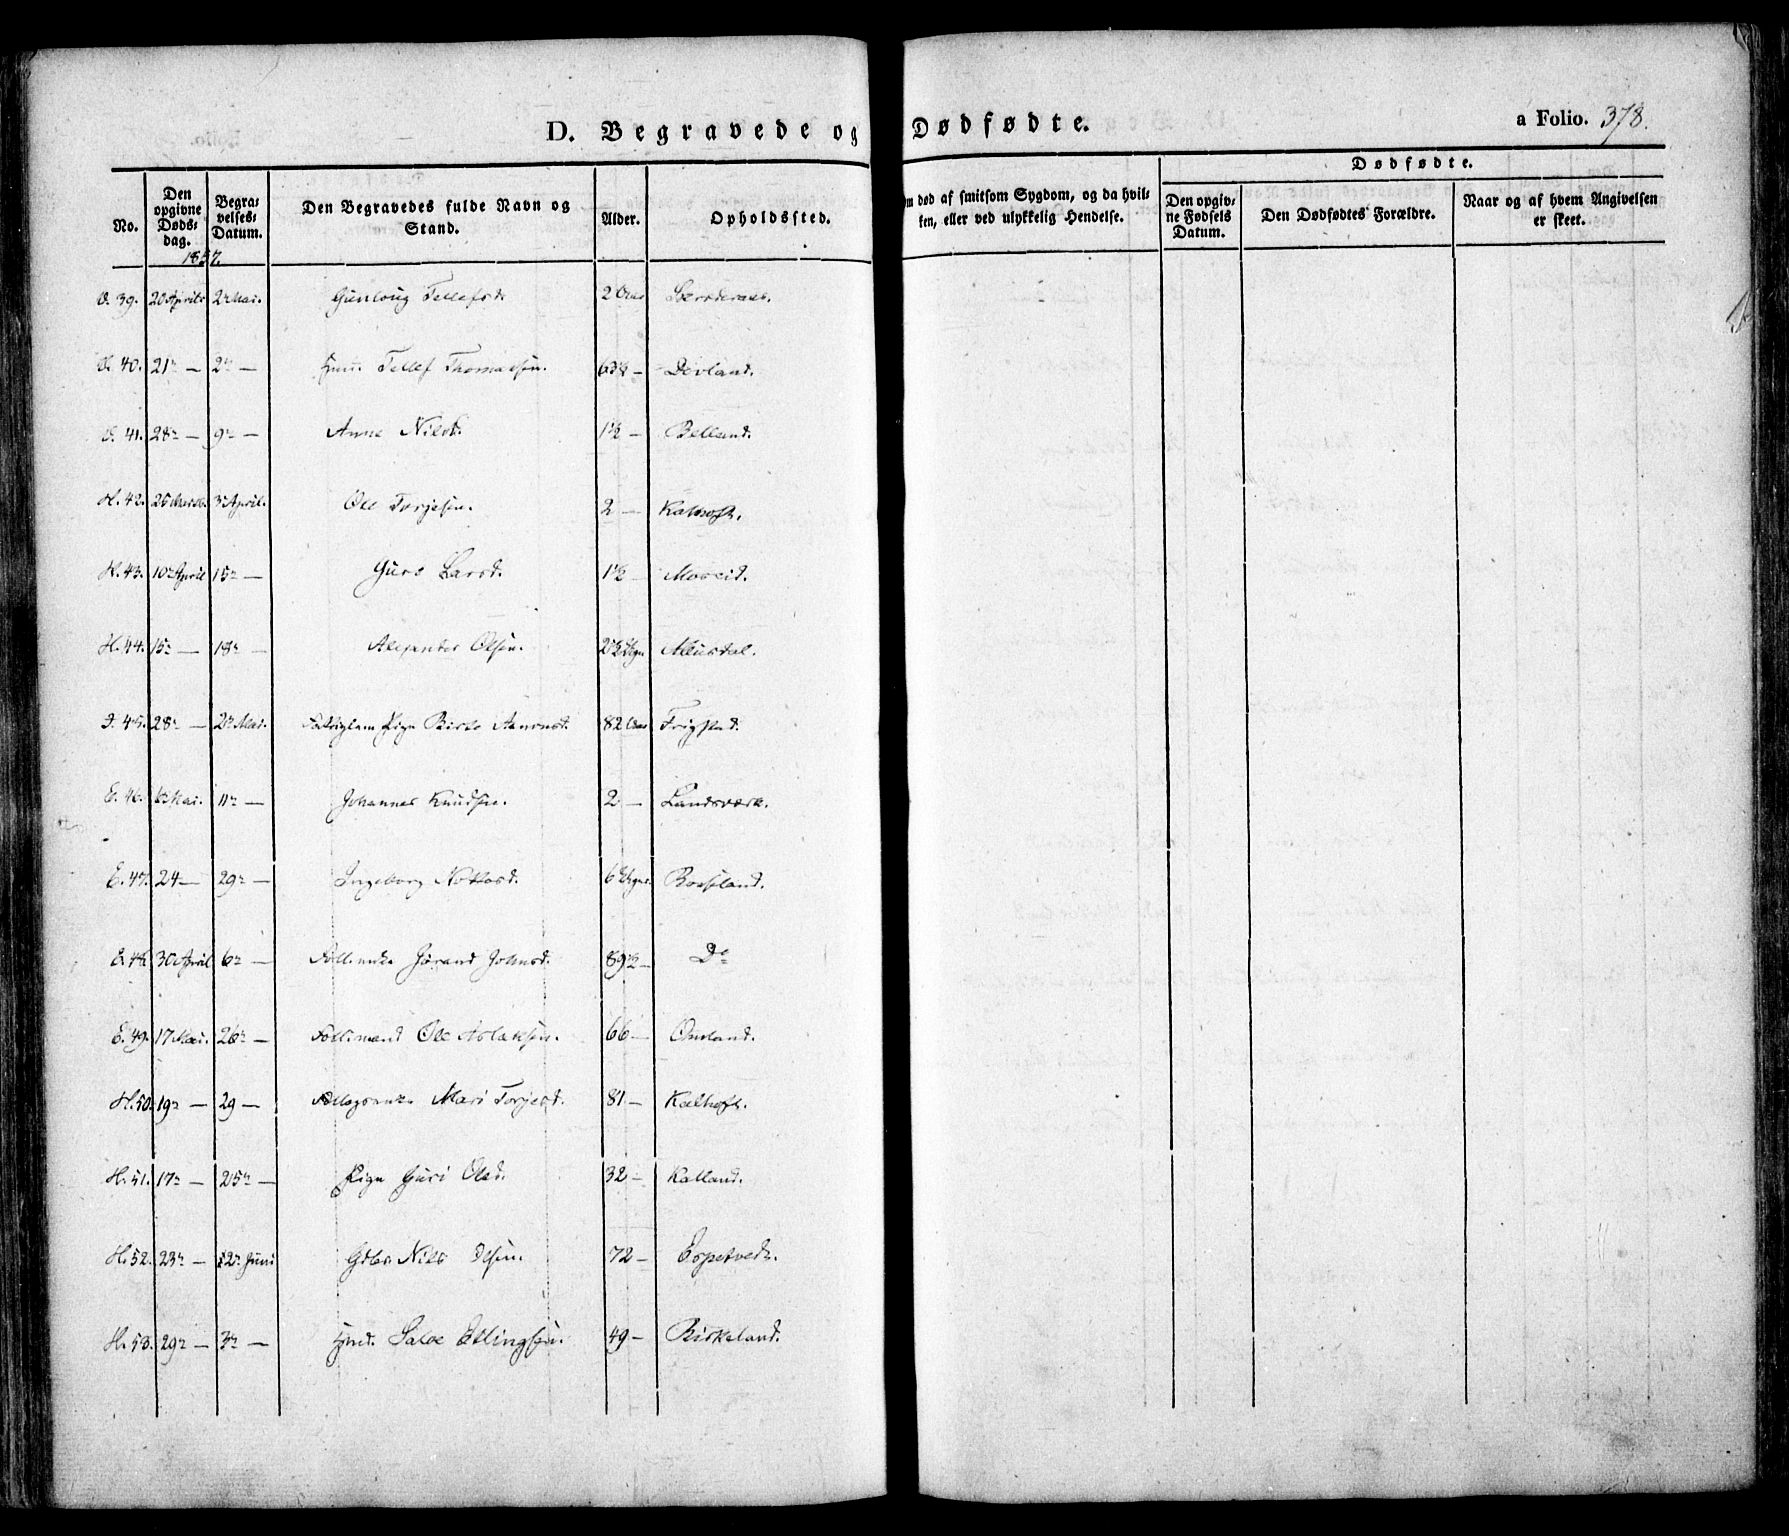 D. Begravede og Dødfødte.
a Folio. 378.
No.
Den opgivne Døds-dag.
Begra-velses-Datum.
Den Begravedes fulde Navn og Stand.
Alder.
Opholdssted.
død af smitsom Sygdom, og da hvil-
ken, eller ved ulykkelig Hendelse.
Dødfødte.
Den opgiv-ne Fødsels Datum.
Den Dødfødtes Forældre.
Naar og af hvem Angivelsen er skeet.
1857.
39. 20 April 2n Mai. Gunloug Tellefsd. 2 Aar
40. 21n — 2n — Tellef Thomassen. — Devland.
41. 28n — 9n — Anne Nilsd. 1½ — Belland.
H. 42. 26 Marts. 3n April. Ole Torjesen. 2 — Kalhoft.
H. 43. 10n April 15n — Guro Larsd. 1½ — Moseid.
H. 44. 15n — 18n — Alexander Olsen. Mustøl.
45. 28n — 2n Mai. Pige Birte 82 Aar Frigstad.
E. 46. 6n Mai. 11n — Johannes Knudsen. 2 — Landsværk.
E. 47. 24 — 29n — Ingeborg 6 Røisland.
E. 48. 30 April 6n — Jørand Johnsd. 89½ — Do
E. 49. 17 Mai. 26n — Ole Aslaksen. 66 — Omland.
H. 50. 19n — 29 — Mari Torjesd. 81 — Kalhoft.
H. 51. 17n — 25n — Pige Guri Olsd. 32 — Kalland.
H. 52. 23n — 2n Juni Gdbr. Nils Olsen. 72 — Espetvedt.
H. 53. 29n — 3n — Salve Ellingsen. 49 — Birkeland.